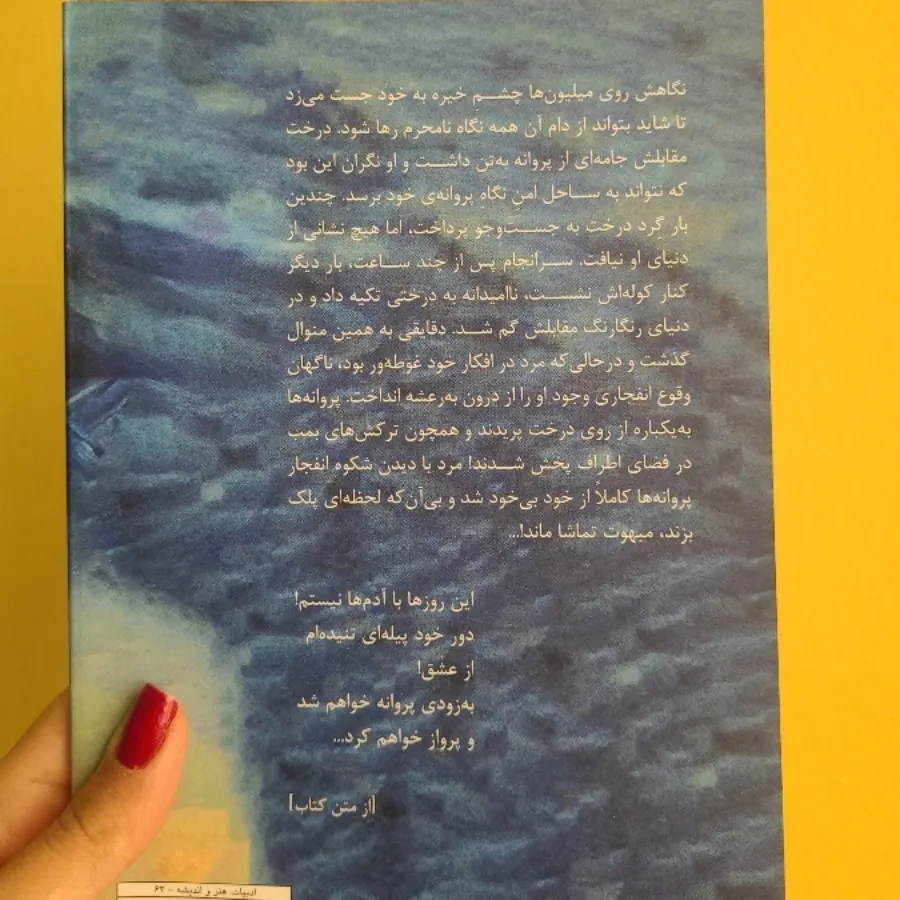 نگاهش روی میلیون‌ها چشم خیره به خود جست می‌زد
تا شاید بتواند از دام آن همه نگاه نامحرم رها شود. درخت
مقابلش جامه‌ای از پروانه به‌تن داشت و او نگران این بود
که نتواند به ساحل امن نگاه پروانه‌ی خود برسد. چندین
بار گرد درخت به جست‌وجو پرداخت، اما هیچ نشانی از
دنیای او نیافت. سرانجام پس از چند ساعت، بار دیگر
کنار کوله‌اش نشست، ناامیدانه به درختی تکیه داد و در
دنیای رنگارنگ مقابلش گم شد. دقایقی به همین منوال
گذشت و درحالی‌که مرد در افکار خود غوطه‌ور بود، ناگهان
وقوع انفجاری وجود او را از درون به‌رعشه انداخت. پروانه‌ها
به‌یکباره از روی درخت پریدند و همچون ترکش‌های بمب
در فضای اطراف پخش شدند! مرد با دیدن شکوه انفجار
پروانه‌ها کاملاً از خود بی‌خود شد و بی‌آن‌که لحظه‌ای پلک
بزند، مبهوت تماشا ماند!...
این روزها با آدم‌ها نیستم!
دور خود پیله‌ای تنیده‌ام
از عشق!
به‌زودی پروانه خواهم شد
و پرواز خواهم کرد...
[از متن کتاب]
ادبیات، هنر و اندیشه - ۶۲